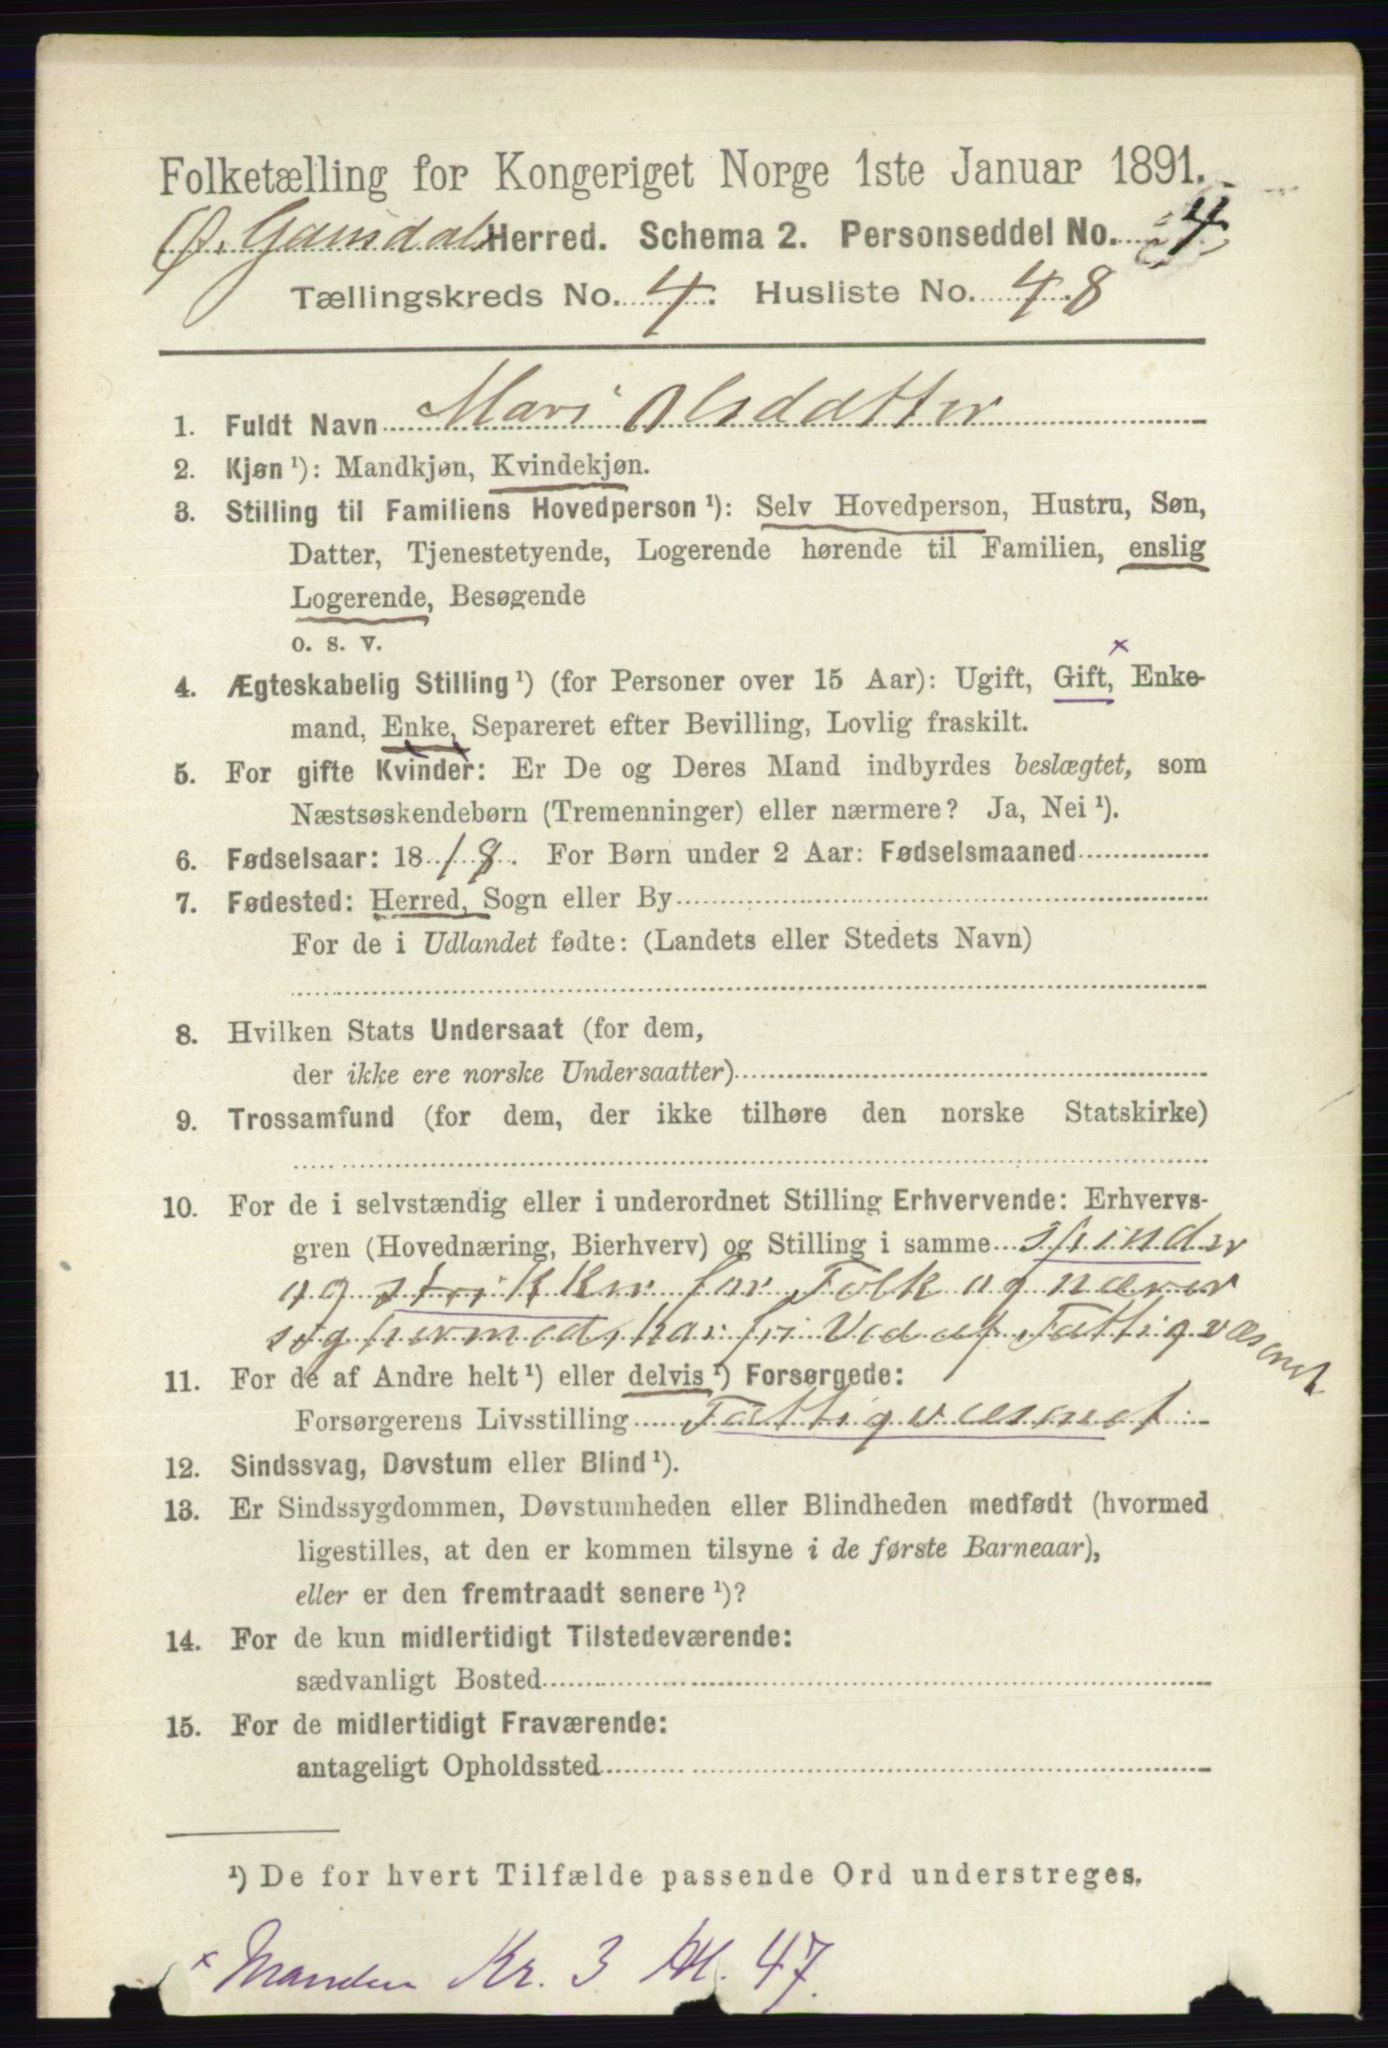 Folketælling for Kongeriget Norge 1ste Januar 1891.
Ø. Gausdal Herred. Schema 2. Personseddel No. 4
Tællingskreds No. 4. Husliste No. 48
1. Fuldt Navn Mari Olsdatter
2. Kjøn ¹): Mandkjøn, Kvindekjøn.
3. Stilling til Familiens Hovedperson ¹): Selv Hovedperson, Hustru, Søn,
Datter, Tjenestetyende, Logerende hørende til Familien, enslig
Logerende, Besøgende
o. s. v.
×
4. Ægteskabelig Stilling ¹) (for Personer over 15 Aar): Ugift, Gift, Enke-
mand, Enke, Separeret efter Bevilling, Lovlig fraskilt.
5. For gifte Kvinder: Er De og Deres Mand indbyrdes beslægtet, som
Næstsøskendebørn (Tremenninger) eller nærmere? Ja, Nei ¹).
6. Fødselsaar: 1818. For Børn under 2 Aar: Fødselsmaaned
7. Fødested: Herred, Sogn eller By
For de i Udlandet fødte: (Landets eller Stedets Navn)
8. Hvilken Stats Undersaat (for dem,
der ikke ere norske Undersaatter)
9. Trossamfund (for dem, der ikke tilhøre den norske Statskirke)
10. For de i selvstændig eller i underordnet Stilling Erhvervende: Erhvervs-
gren (Hovednæring, Bierhverv) og Stilling i samme spinder
og strikker for Folk og nærer
sig hermed, har fri Ved af Fattigvæsenet
11. For de af Andre helt ¹) eller delvis ¹) Forsørgede:
Forsørgerens Livsstilling Fattigvæsenet
12. Sindssvag, Døvstum eller Blind ¹).
13. Er Sindssygdommen, Døvstumheden eller Blindheden medfødt (hvormed
ligestilles, at den er kommen tilsyne i de første Barneaar),
eller er den fremtraadt senere ¹)?
14. For de kun midlertidigt Tilstedeværende:
sædvanligt Bosted
15. For de midlertidigt Fraværende:
antageligt Opholdssted
¹) De for hvert Tilfælde passende Ord understreges.
× Manden Kr. 3 Hl. 47.